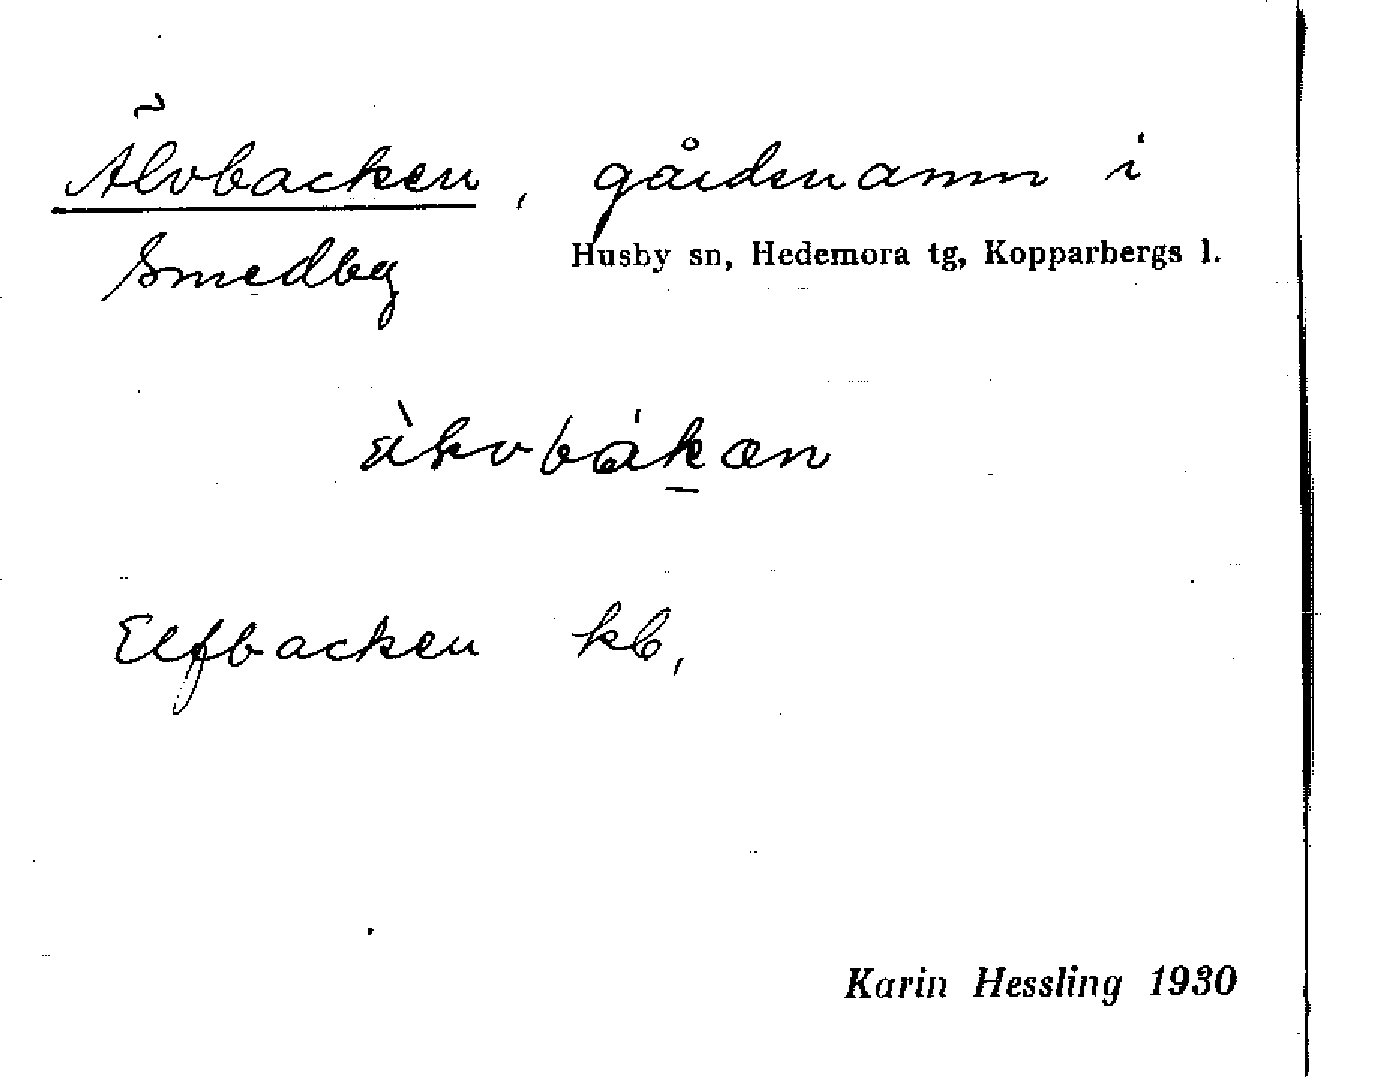 Älvbacken, gårdsnamn i
Smedby Husby sn, Hedemora tg, Kopparbergs l.
Elfbacken kb,
Karin Hessling 1930